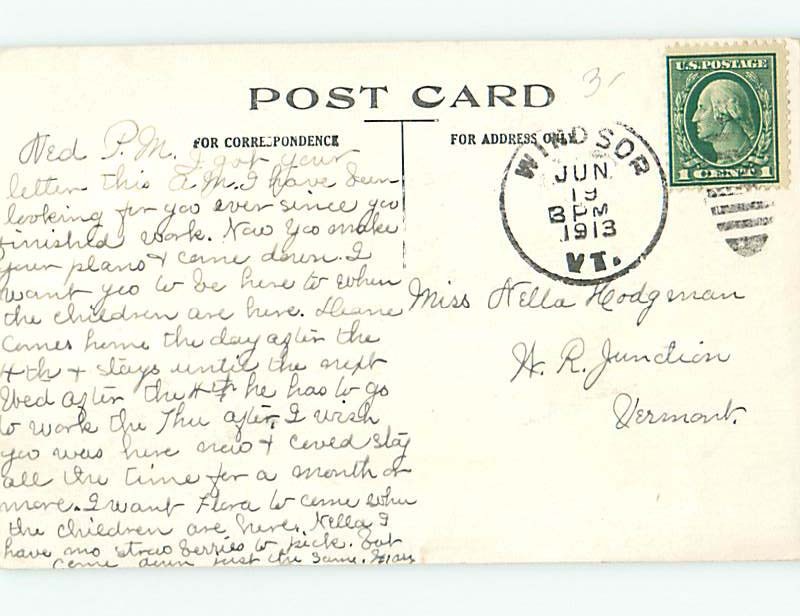 3
U.S. POSTAGE
1 CENT 1
POST CARD
FOR CORRESPONDENCE
FOR ADDRESS ONLY
WINDSOR
JUN
19
3 PM
1913
VT.
Wed P.M. I got your
letter this A.M. I have been
looking for you ever since you
finished work. Now you make
your plans + come down. I
want you to be here to when
the children are here. Deane
comes home the day after the
4th + stays until the next
Wed after the 4th he has to go
to work the Thu after. I wish
you was here now + coved stay
all the time for a month or
more. I want Flora to come when
the children are here. Nella I
have no straw berries to pick. but
come down just the same.
Miss Nella Hodgman
W. R. Junction
Vermont.